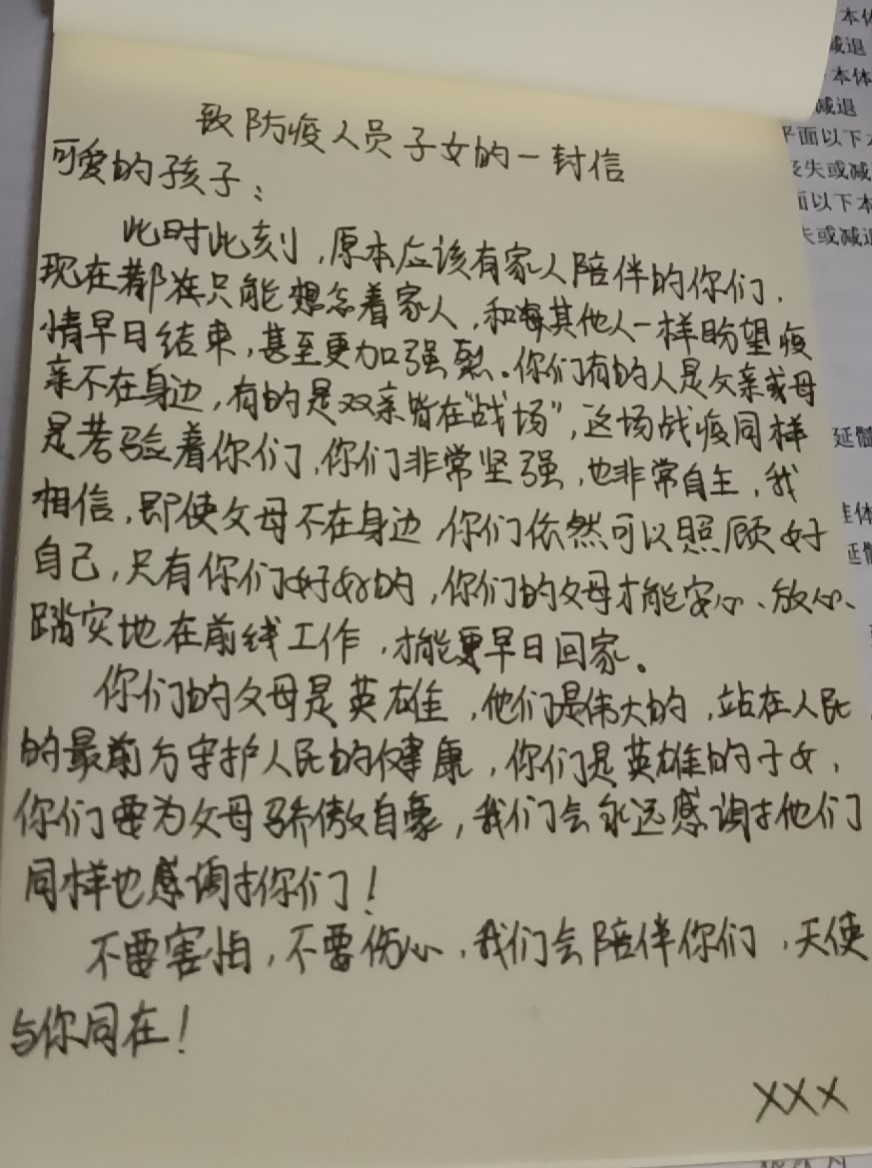 致防疫人员子女的一封信
可爱的孩子：
此时此刻，原本应该有家人陪伴的你们，
现在都在只能想念着家人，和每其他人一样盼望疫
情早日结束，甚至更加强烈。你们有的人是父亲或母
亲不在身边，有的是双亲皆在“战场”，这场战疫同样
是考验着你们，你们非常坚强，也非常自主，我
相信，即使父母不在身边，你们依然可以照顾好
自己，只有你们好好的，你们的父母才能安心、放心、
踏实地在前线工作，才能更早日回家。
你们的父母是英雄，他们是伟大的，站在人民
的最前方守护人民的健康，你们是英雄的子女，
你们要为父母骄傲自豪，我们会永远感谢他们
同样也感谢你们！
不要害怕，不要伤心，我们会陪伴你们，天使
与你同在！
XXX
本体
减退
本体
减退
平面以下本
丧失或减
面以下本
失或减退
延髓
延髓